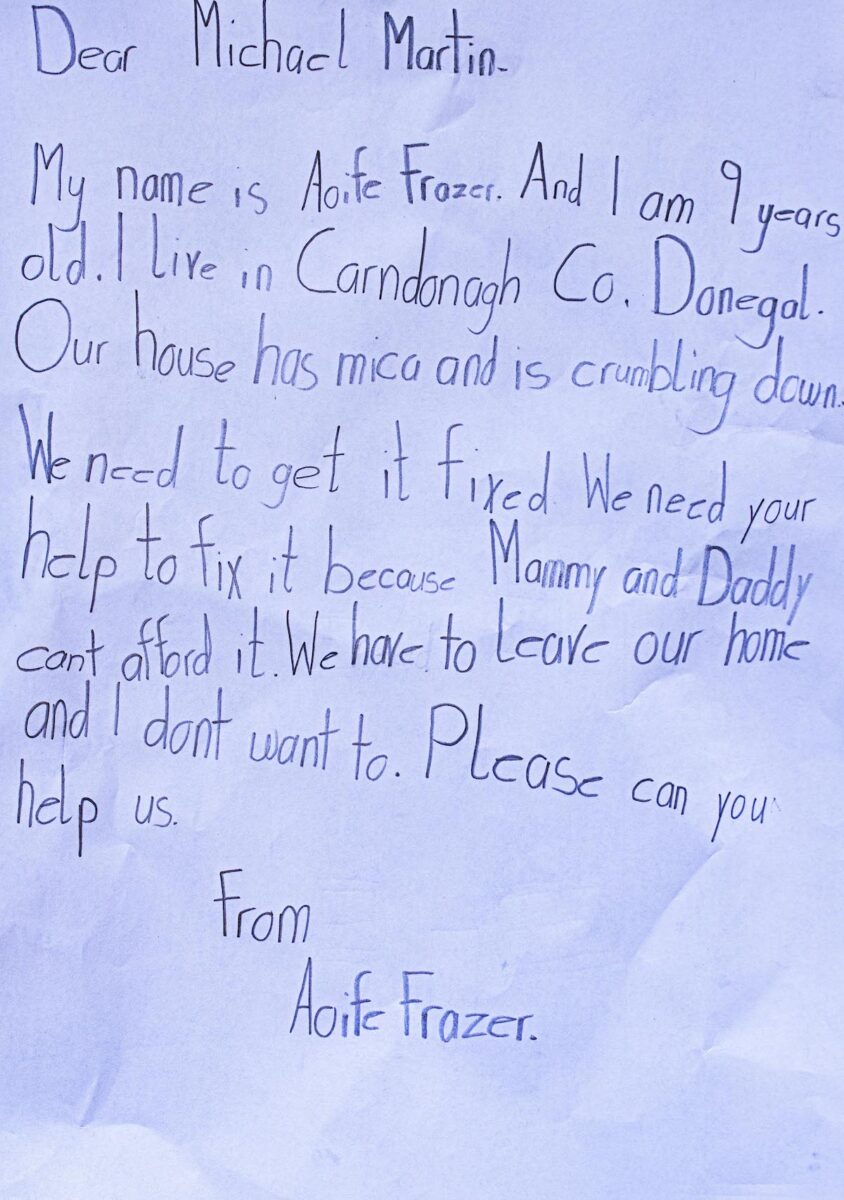 Dear Michael Martin.
My name is Aoife Frazer. And I am 9 years
old. I live in Carndonagh Co. Donegal.
Our house has mica and is crumbling down.
We need to get it fixed We need your
help to fix it because Mammy and Daddy
cant afford it. We have to leave our home
and I dont want to. Please can you
help us.
From
Aoife Frazer.